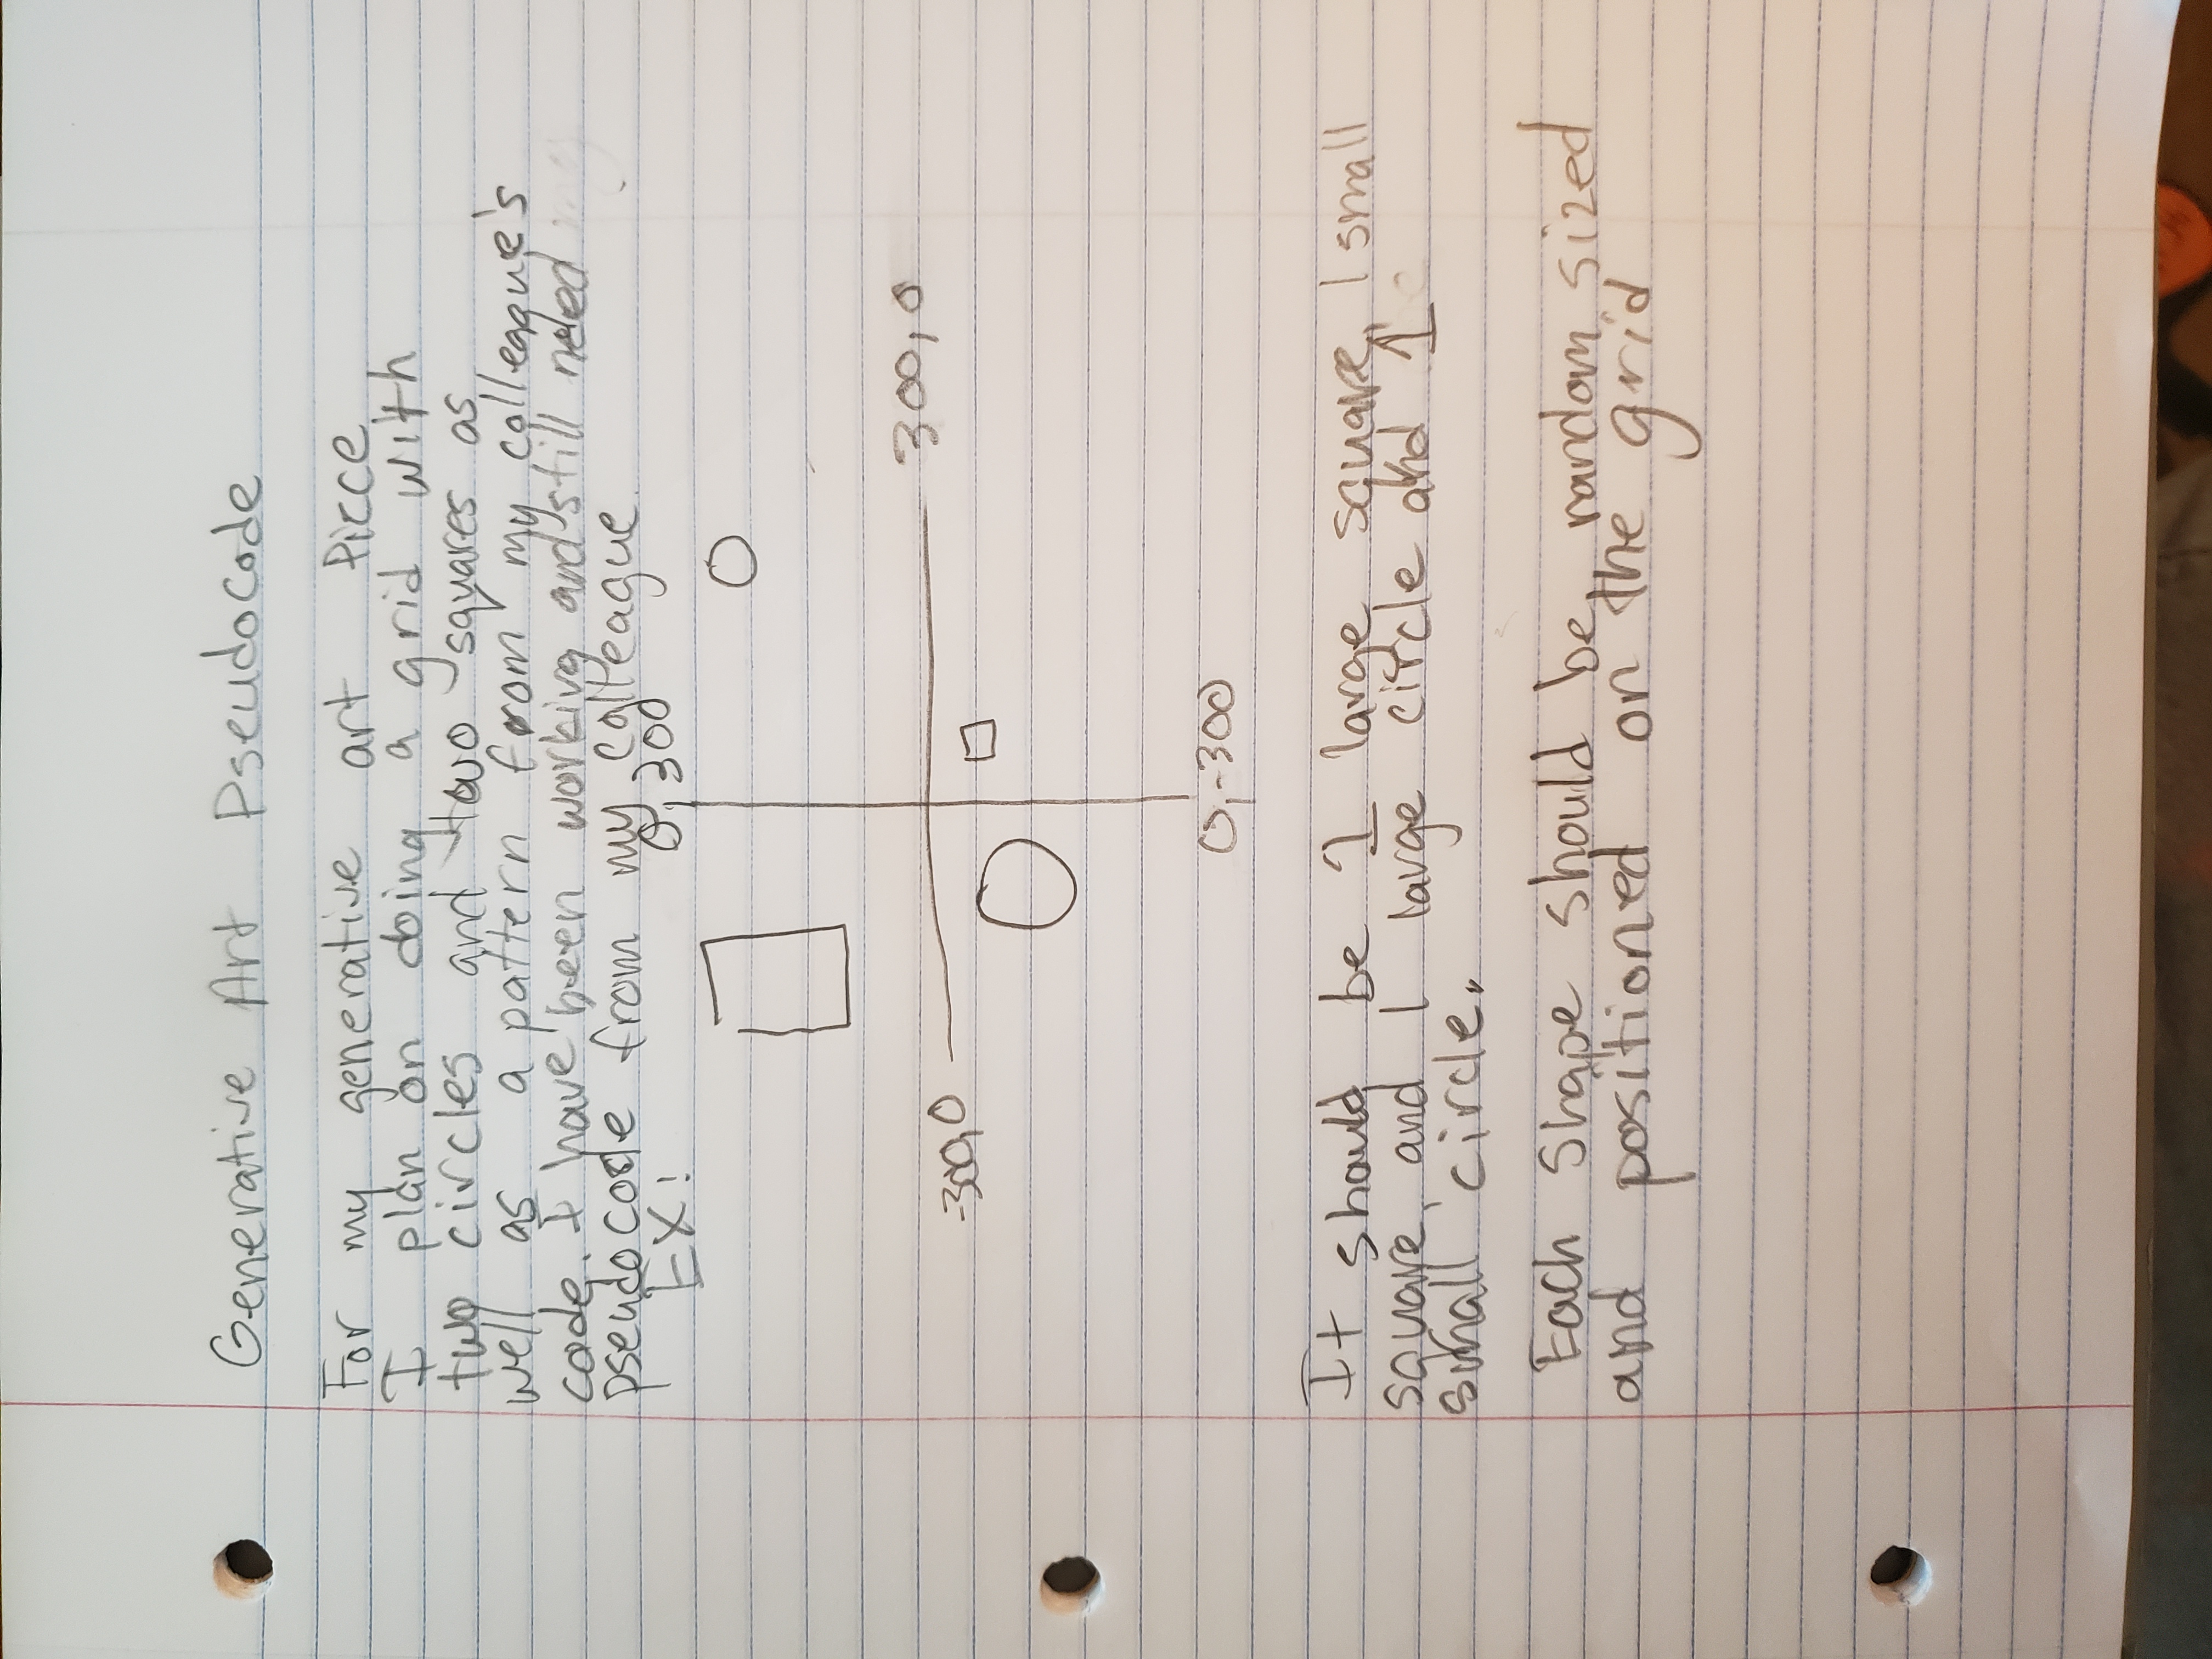 Generative Art Pseudocode
For my generative art Piece
I plan on doing a grid with
two circles and two squares as
well as a pattern from my colleague's
code. I have been working and still need
pseudocode from my colleague.
EX!
0, 300
300, 0
-300, 0
0, -300
It should be 1 large square, 1 small
square, and 1 large circle and 1
small circle.
Each shape should be random sized
and positioned on the grid